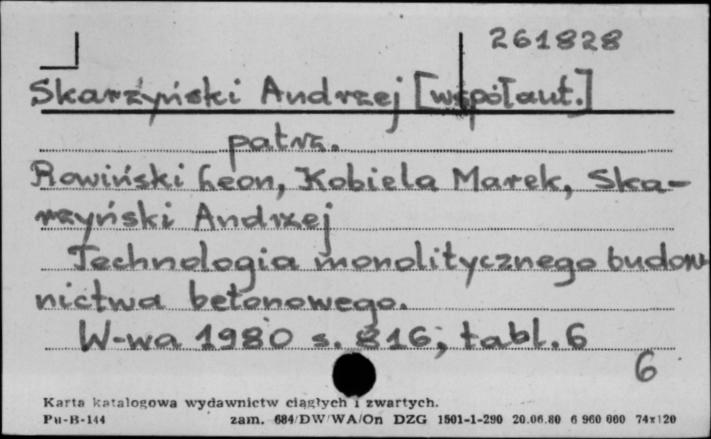 261828
Skarzyński Andrzej [współaut.]
patrz.
Rowiński Leon, Kobiela Marek, Ska-
rzyński Andrzej
Technologia monolitycznego budow-
nictwa betonowego.
W-wa 1980 s. 816; tabl. 6
6
Karta katalogowa wydawnictw ciągłych i zwartych.
Pu-B-144 zam. 684/DW/WA/On DZG 1501-1-290 20.06.80 6 960 000 74x120